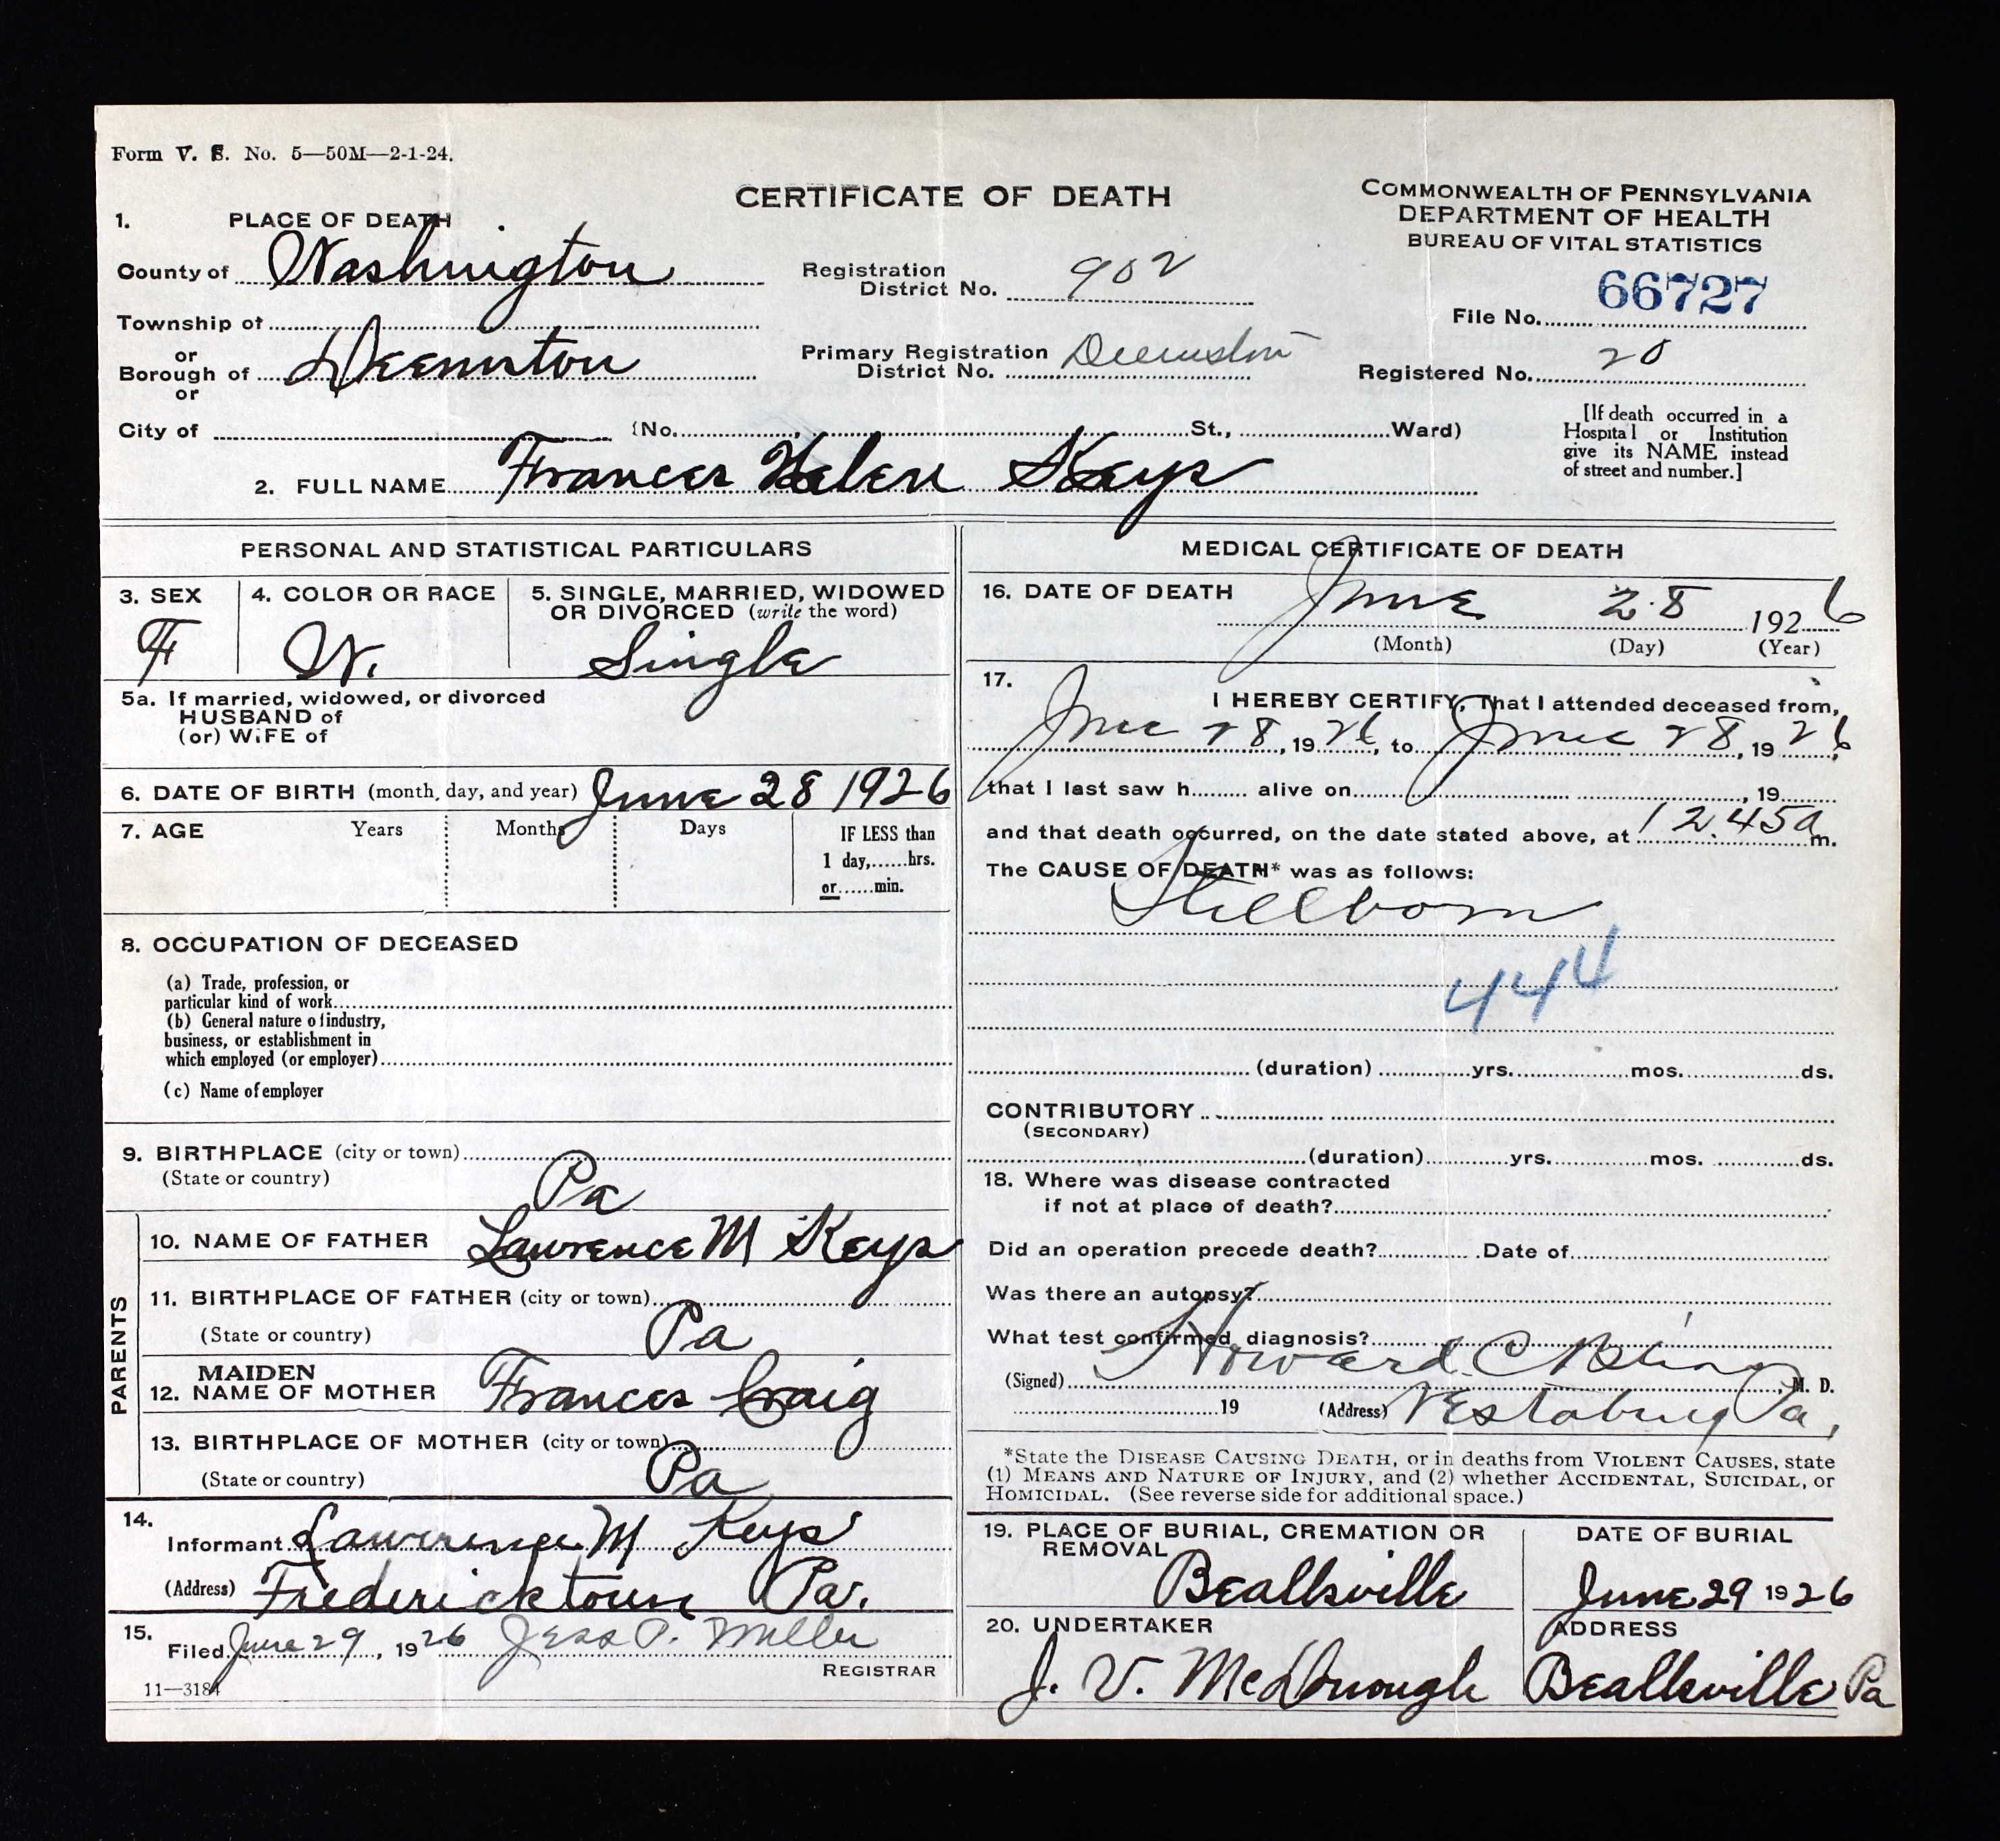 Form V. S. No. 5—50M—2-1-24.
CERTIFICATE OF DEATH
COMMONWEALTH OF PENNSYLVANIA
DEPARTMENT OF HEALTH
BUREAU OF VITAL STATISTICS
1. PLACE OF DEATH
County of Washington
Registration District No. 902
File No. 66727
Township of
or
Borough of Deemston
or
Primary Registration District No. Deemston
Registered No. 20
City of (No. , St., Ward)
[If death occurred in a Hospital or Institution give its NAME instead of street and number.]
2. FULL NAME Frances Helen Keys
PERSONAL AND STATISTICAL PARTICULARS
3. SEX F
4. COLOR OR RACE W.
5. SINGLE, MARRIED, WIDOWED OR DIVORCED (write the word) Single
5a. If married, widowed, or divorced
HUSBAND of
(or) WIFE of
6. DATE OF BIRTH (month, day, and year) June 28 1926
7. AGE Years Months Days IF LESS than
1 day,......hrs.
or......min.
8. OCCUPATION OF DECEASED
(a) Trade, profession, or
particular kind of work
(b) General nature of industry,
business, or establishment in
which employed (or employer)
(c) Name of employer
9. BIRTHPLACE (city or town)
(State or country) Pa
PARENTS
10. NAME OF FATHER Lawrence M Keys
11. BIRTHPLACE OF FATHER (city or town)
(State or country) Pa
12. MAIDEN NAME OF MOTHER Frances Craig
13. BIRTHPLACE OF MOTHER (city or town)
(State or country) Pa
14.
Informant Lawrence M Keys
(Address) Fredericktown Pa.
15.
Filed June 29, 1926 Jess P. Miller
REGISTRAR
11—3184
MEDICAL CERTIFICATE OF DEATH
16. DATE OF DEATH June 28 1926
(Month) (Day) (Year)
17. I HEREBY CERTIFY, That I attended deceased from,
June 28, 1926, to June 28, 1926,
that I last saw h........ alive on , 19
and that death occurred, on the date stated above, at 12.45 a m.
The CAUSE OF DEATH* was as follows:
Stillborn
444
(duration) yrs. mos. ds.
CONTRIBUTORY
(SECONDARY)
(duration) yrs. mos. ds.
18. Where was disease contracted
if not at place of death?
Did an operation precede death? Date of
Was there an autopsy?
What test confirmed diagnosis?
(Signed) Howard C , M. D.
19 (Address) Vestaburg Pa,
*State the DISEASE CAUSING DEATH, or in deaths from VIOLENT CAUSES, state
(1) MEANS AND NATURE OF INJURY, and (2) whether ACCIDENTAL, SUICIDAL, or
HOMICIDAL. (See reverse side for additional space.)
19. PLACE OF BURIAL, CREMATION OR REMOVAL Beallsville
DATE OF BURIAL June 29 1926
20. UNDERTAKER J. V. McDonough
ADDRESS Beallsville Pa